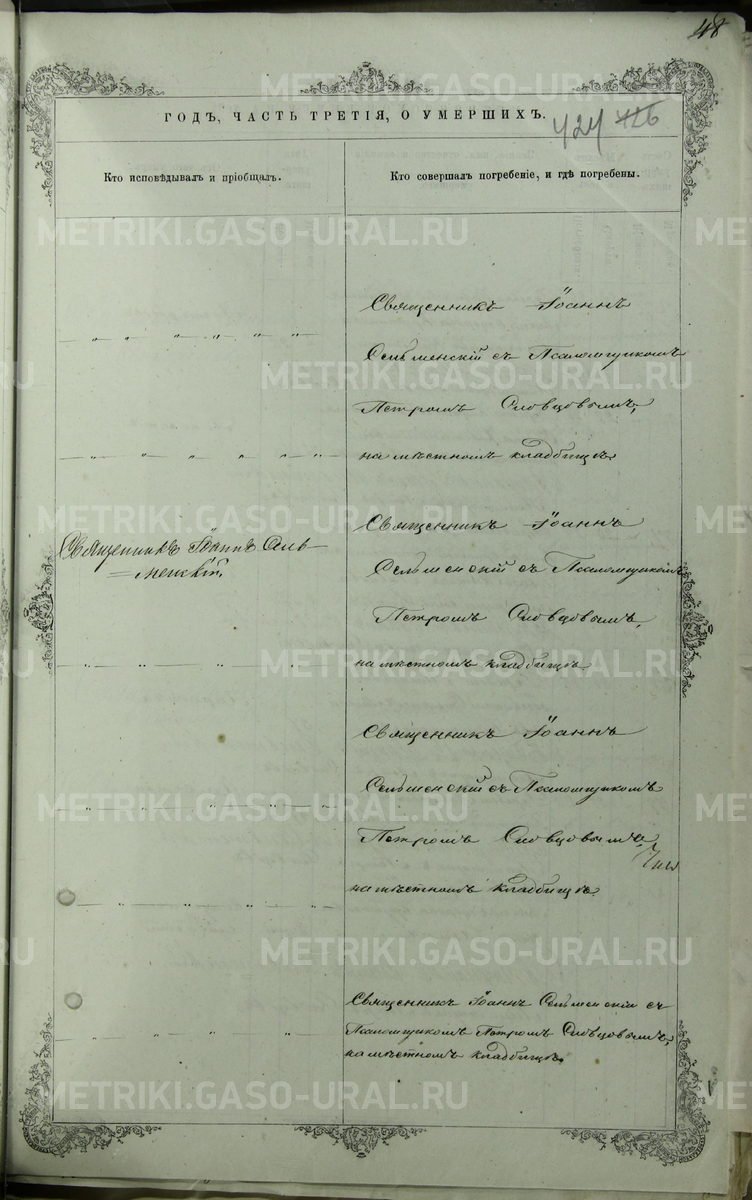 48
ГОДЪ, ЧАСТЬ ТРЕТІЯ, О УМЕРШИХЪ.
424 426
Кто исповѣдывалъ и пріобщалъ.
Кто совершалъ погребеніе, и гдѣ погребены.
Священникъ Іоаннъ
Сельменскій съ Псаломщикомъ
Петромъ Словцовымъ,
на мѣстномъ кладбищѣ.
Священникъ Іоаннъ Сель-
менскій.
Священникъ Іоаннъ
Сельменскій съ Псаломщикомъ
Петромъ Словцовымъ,
на мѣстномъ кладбищѣ
Священникъ Іоаннъ
Сельменскій съ Псаломщикомъ
Петромъ Словцовымъ,
на мѣстномъ кладбищѣ.
Священникъ Іоаннъ Сельменскій съ
Псаломщикомъ Петромъ Словцовымъ,
на мѣстномъ кладбищѣ.
METRIKI.GASO-URAL.RU